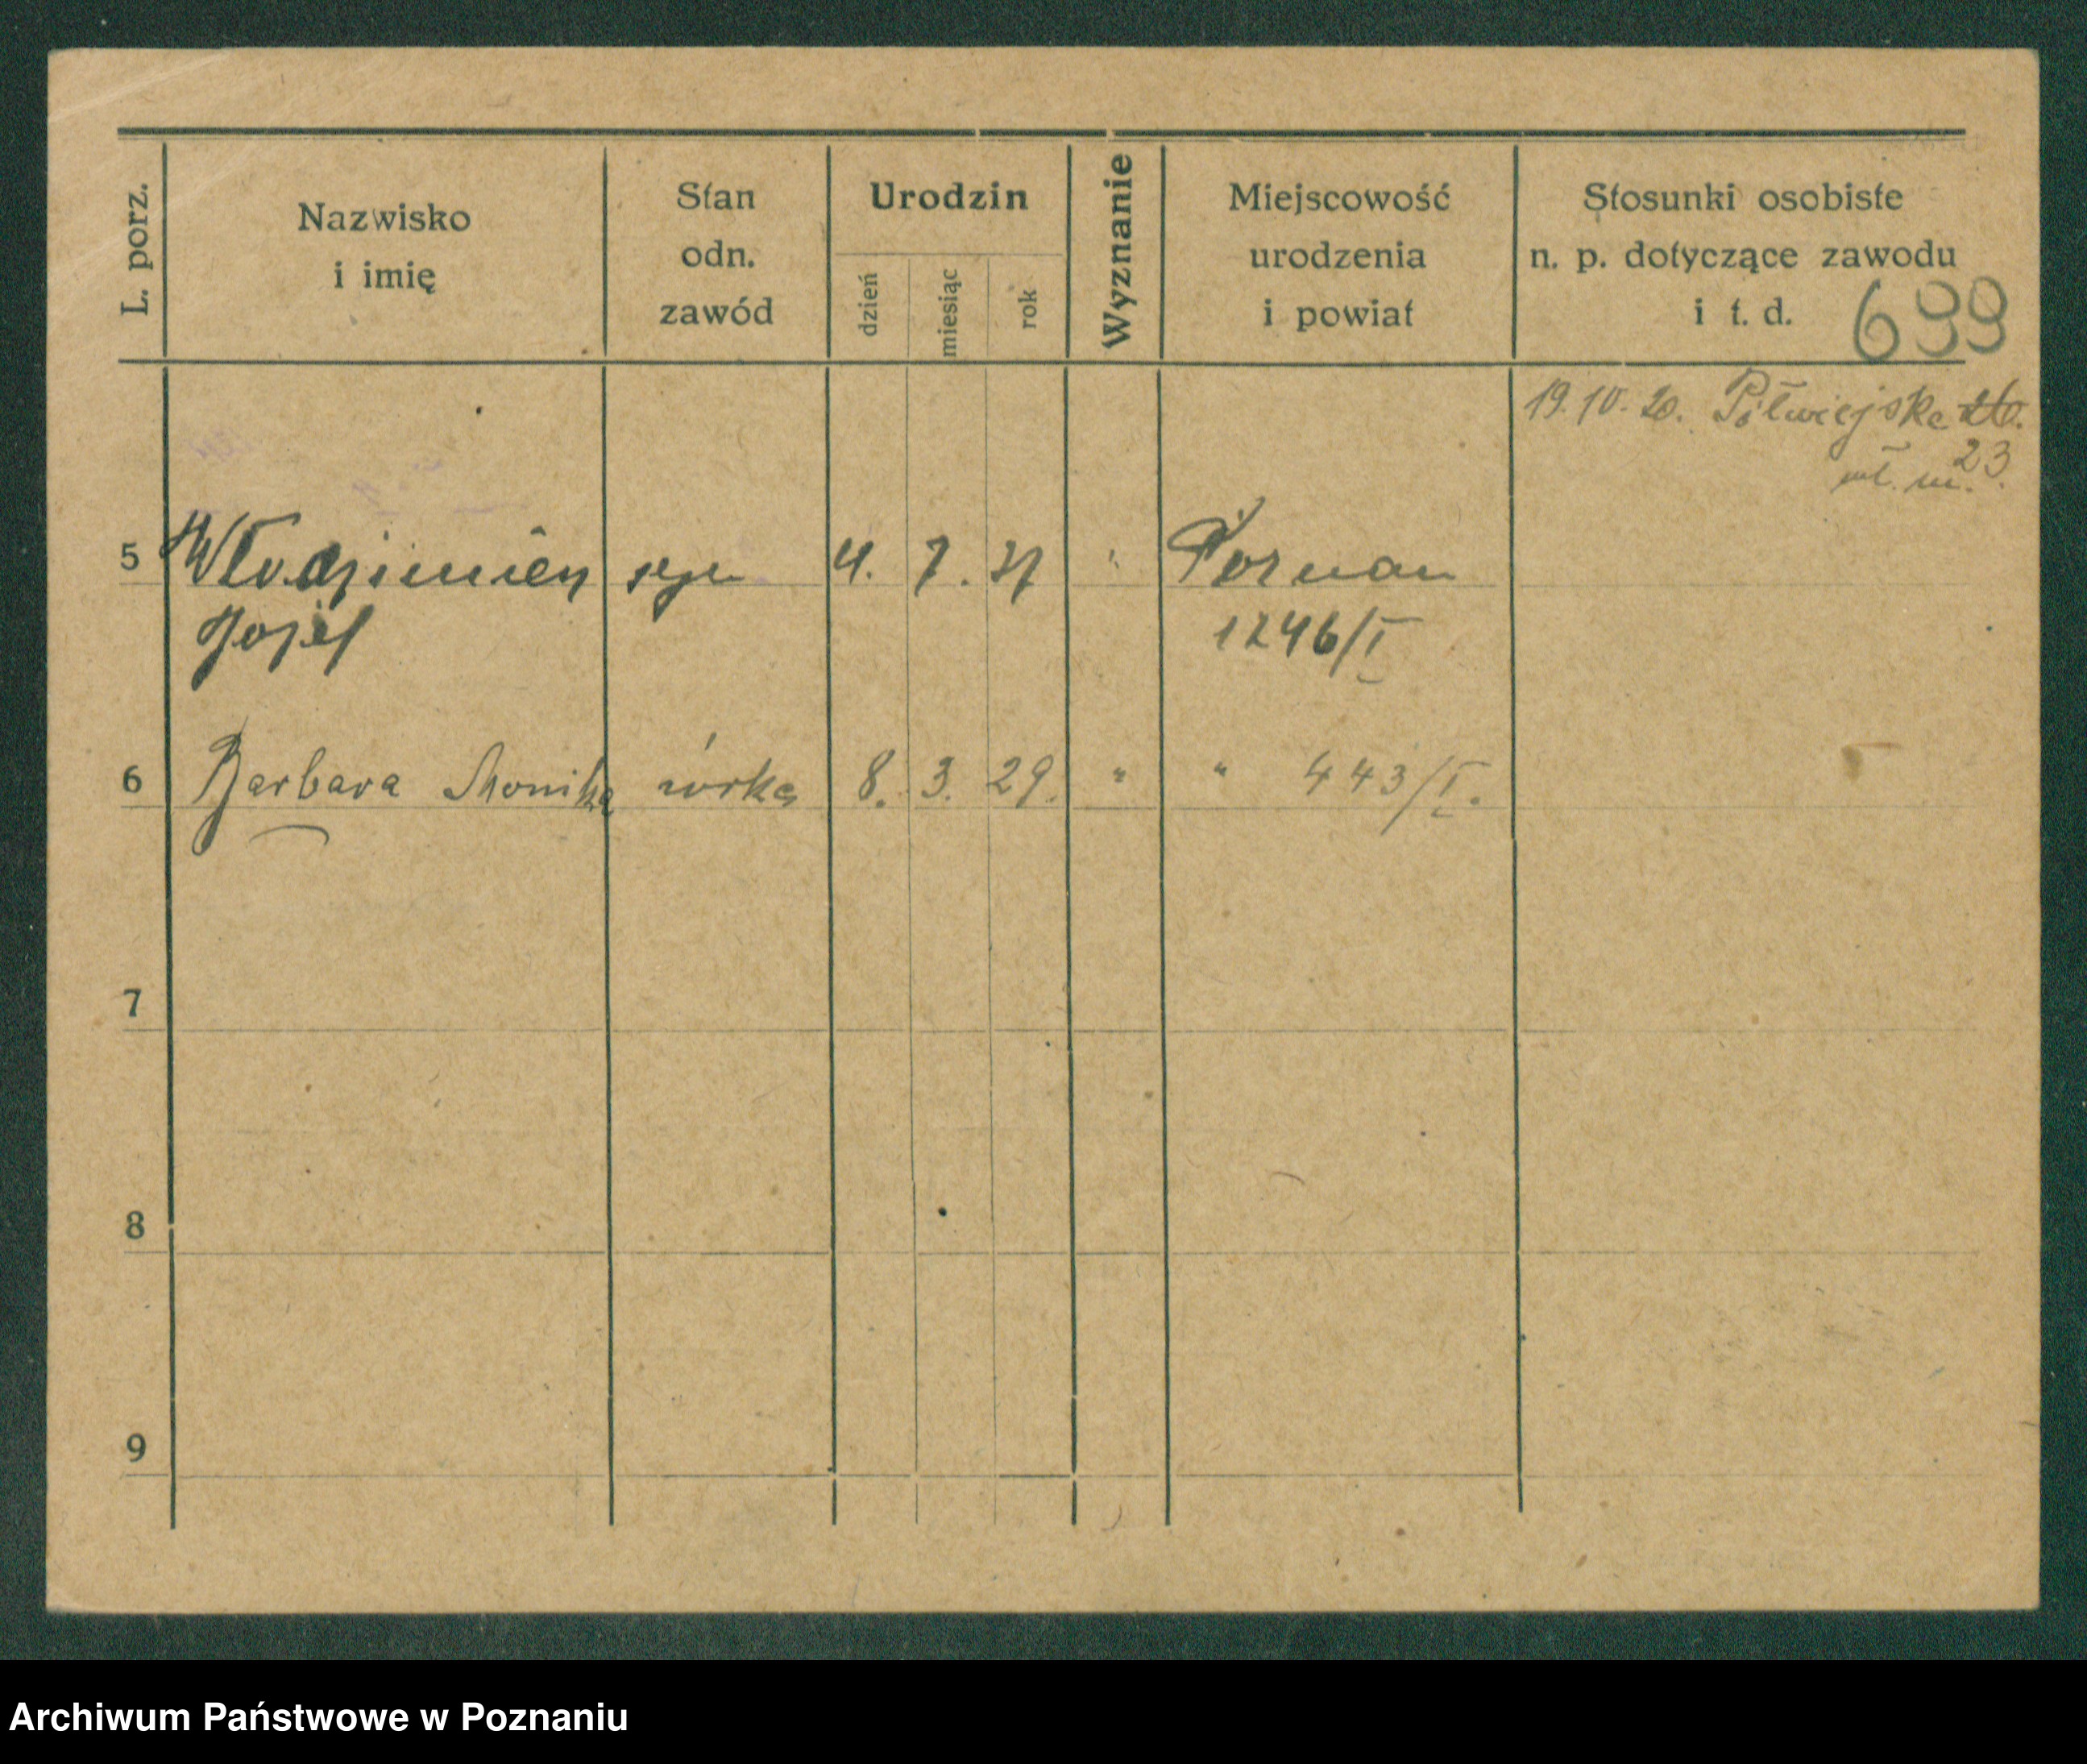 L. porz.
Nazwisko
i imię
Stan
odn.
zawód
Urodzin
dzień
miesiąc
rok
Wyznanie
Miejscowość
urodzenia
i powiat
Stosunki osobiste
n. p. dotyczące zawodu
i t. d.
699
19. 10. 20. Półwiejska
23
5 Włodzimierz syn 4. 7. " Poznań
Józef 1246/I
6 Barbara Monika córka 8. 3. 29. " " 443/I.
7
8
9
Archiwum Państwowe w Poznaniu